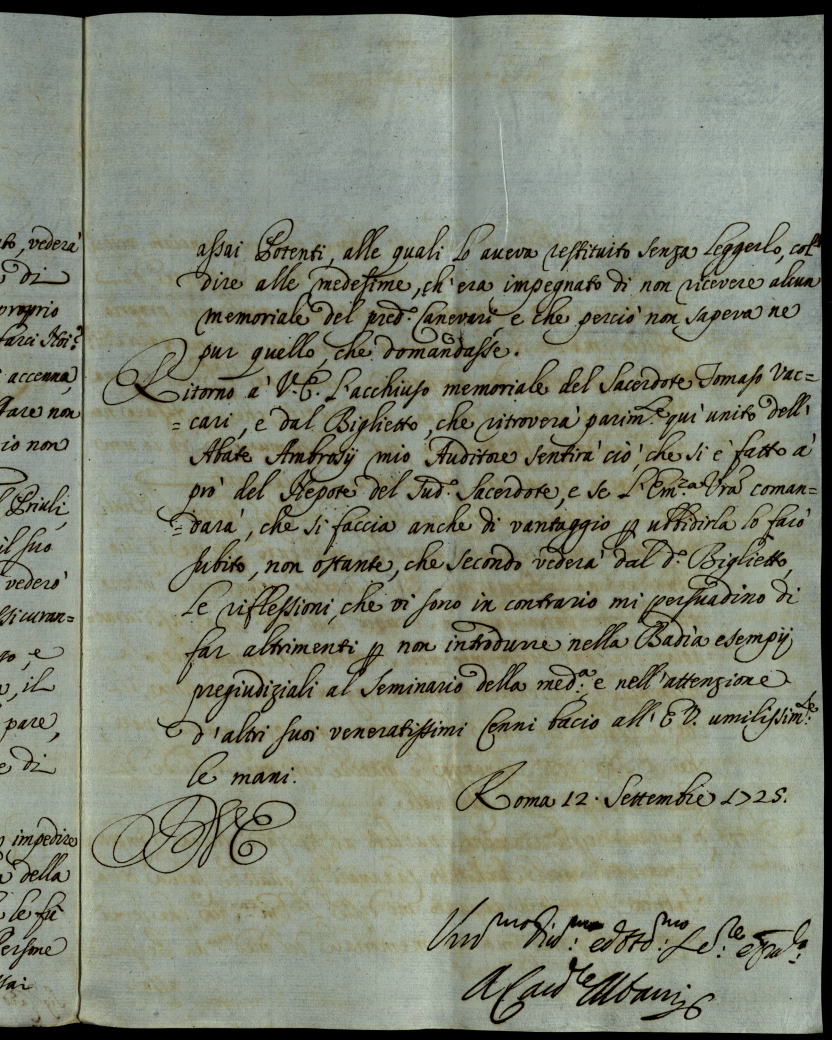 to, vederà
di
proprio
farci Noi?
accenna,
fare non
io non
l Priuli,
il suo
vederò
ssicuran=
go, e
a, il
pare,
e di
impedire
à della
le fù
Persone
ssai
assai Potenti, alle quali lo aueva restituito senza leggerlo, col
dire alle medesime, ch'era impegnato di non riceuere alcun
memoriale del pred.º Caneuari, e che perciò non sapeva ne
pur quello, che domandasse.
Ritorno à V.E. l'acchiuso memoriale del Sacerdote Tomaso Vac=
=cari, e dal Biglietto, che ritroverà parim.te qui unito dell'
Abate Ambrosij mio Auditore sentirà ciò, che si è fatto à
prò del Nepote del Sud.º Sacerdote, e se l'Em.za Vrā coman=
=darà, che si faccia anche di vantaggio ꝑ ubbidirla lo farò
subito, non ostante, che secondo vederà dal d.º Biglietto,
le riflessioni, che vi sono in contrario mi persuadino di
far altrimenti ꝑ non introdurre nella Badia esempij
pregiudiziali al Seminario della med.a, e nell'attenzione
d'altri suoi veneratissimi Cenni bacio all'E.V. umilissim.te
le mani.
Roma 12. Settembre 1725.
Um.mo Diu.mo ed Obb.mo Se.re
A Card.le Albani